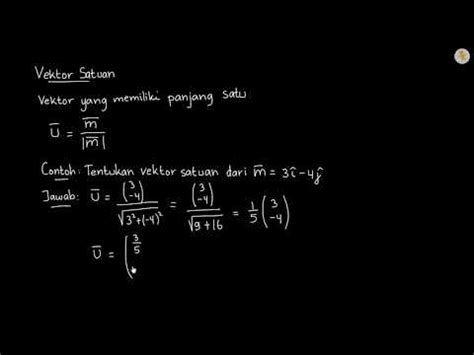 Vektor Satuan
Vektor yang memiliki panjang satu
U̅ = m̅ / |m̅|
Contoh: Tentukan vektor satuan dari m̅ = 3î - 4ĵ
Jawab: U̅ = (3 -4) / √3²+(-4)² = (3 -4) / √9+16 = 1/5 (3 -4)
U̅ = ( 3/5